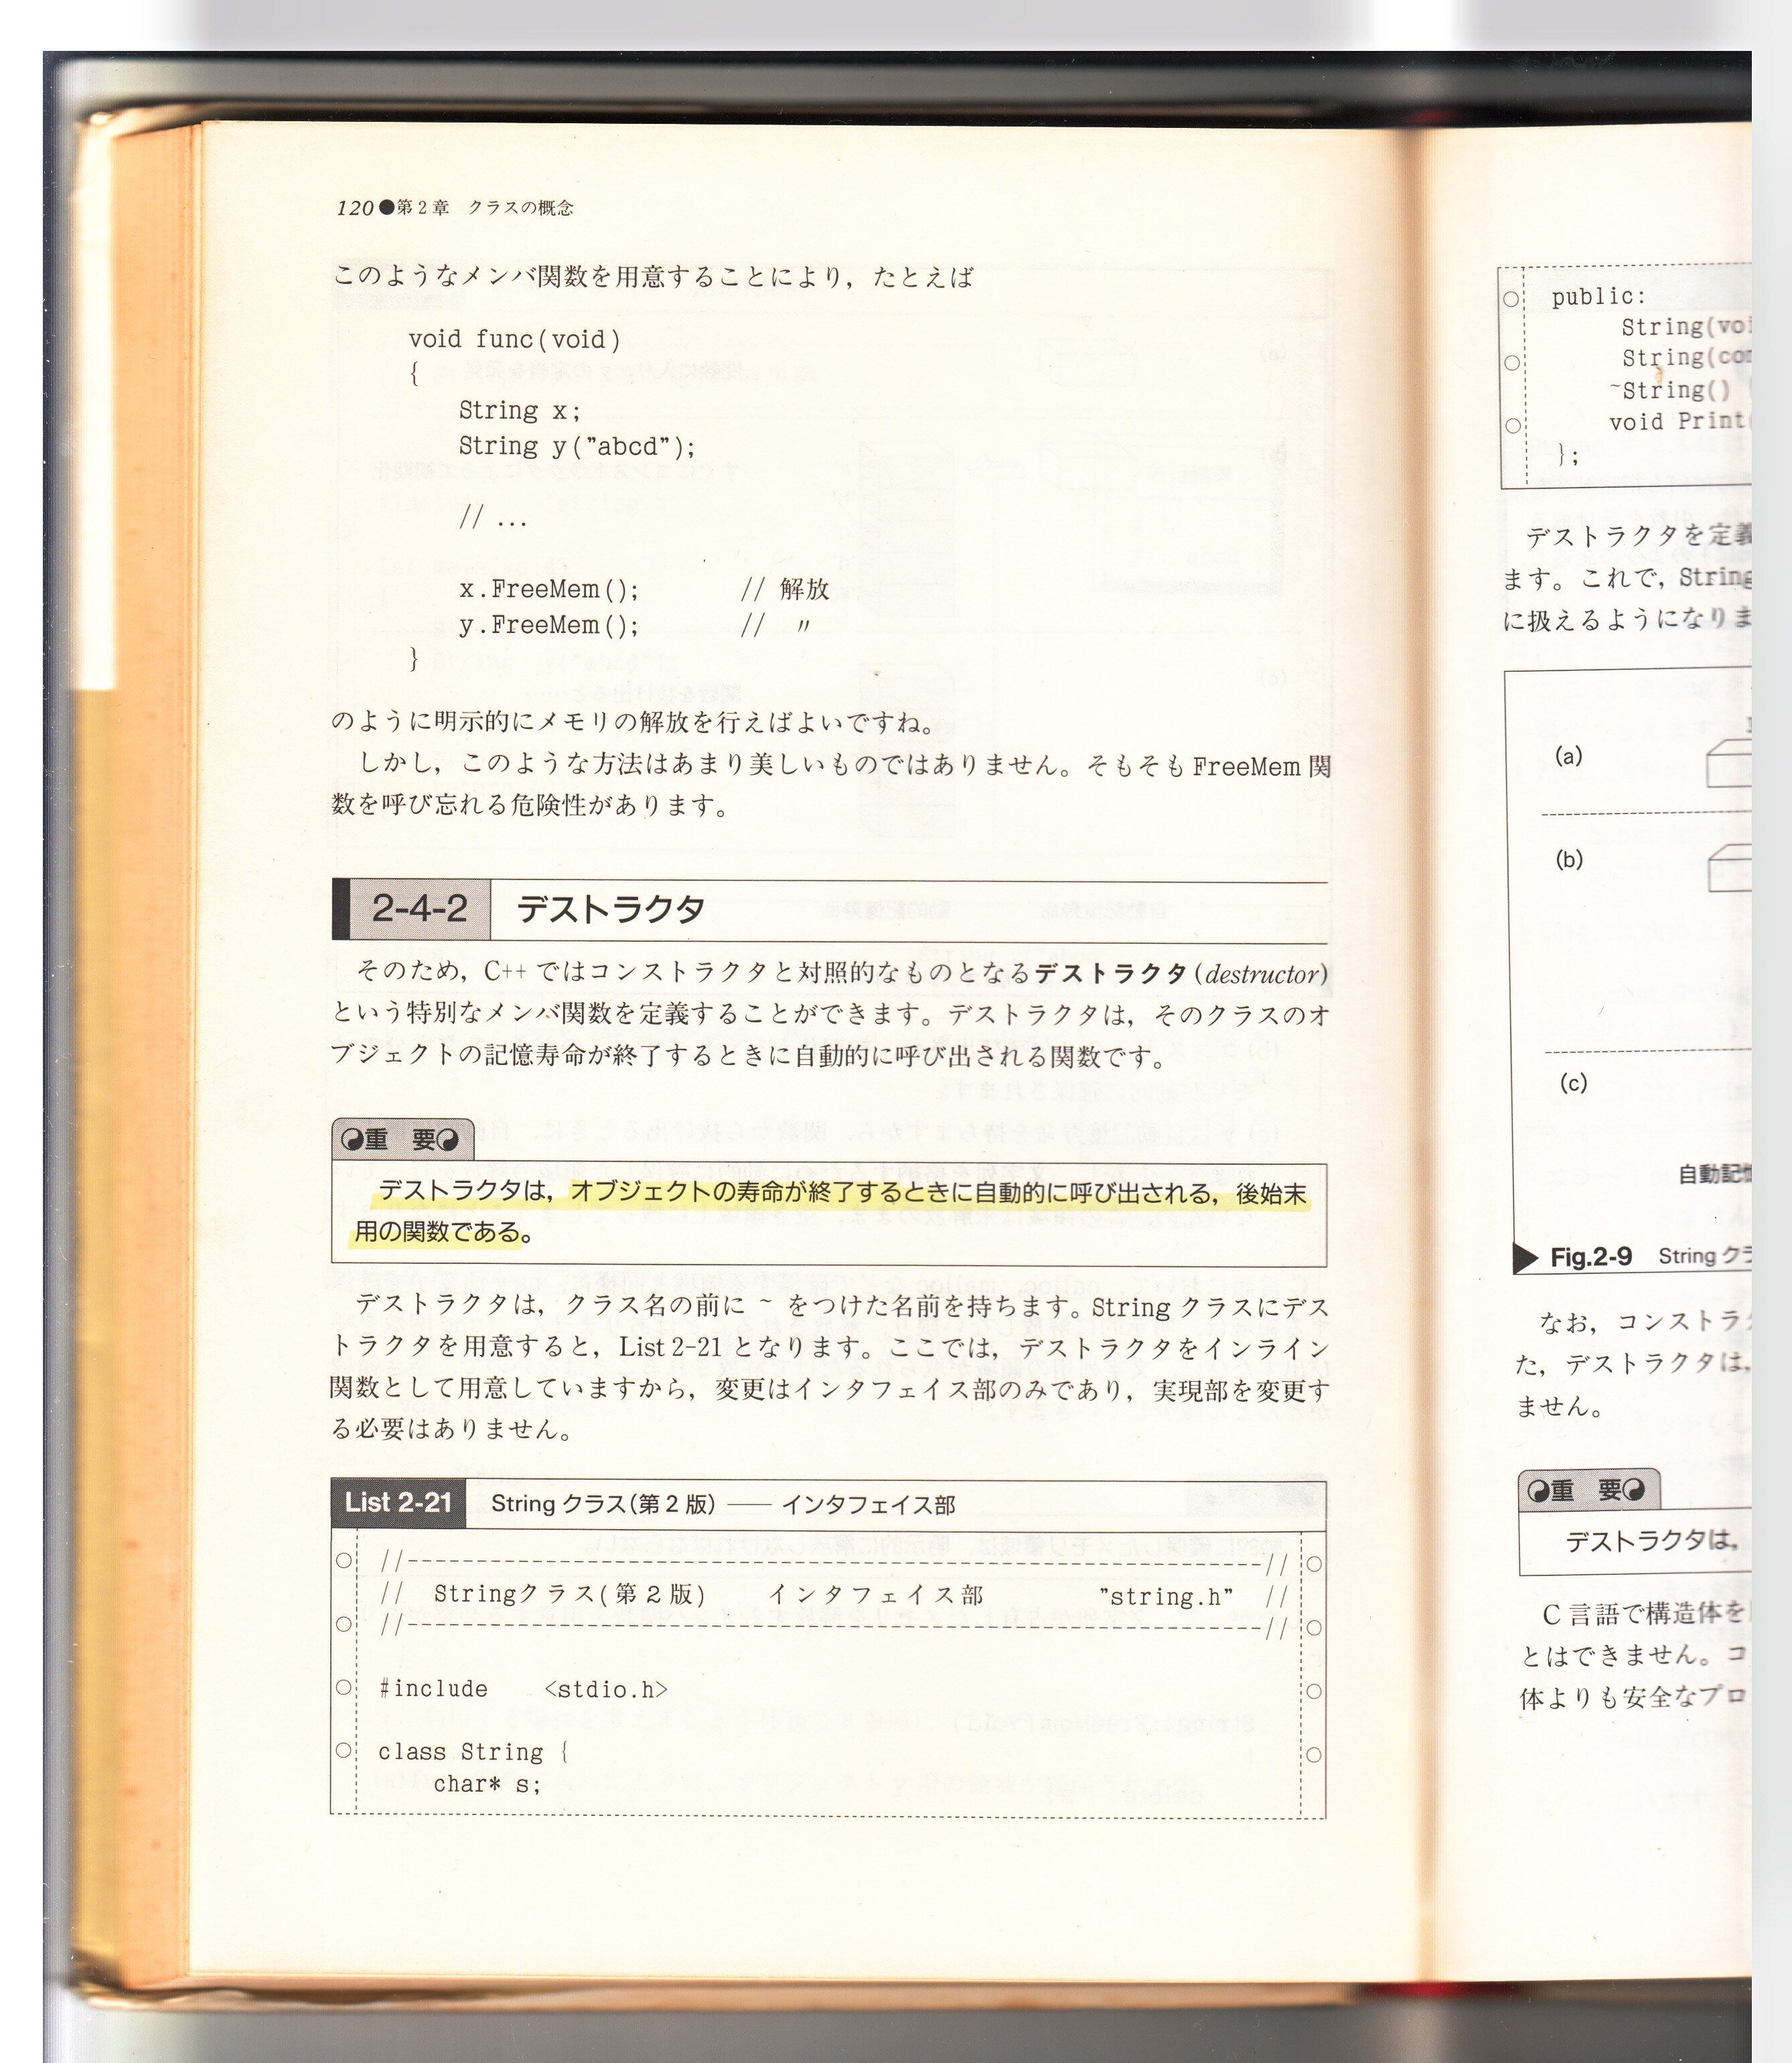 120●第2章 クラスの概念
このようなメンバ関数を用意することにより，たとえば
void func(void)
{
String x;
String y("abcd");
// ...
x.FreeMem(); // 解放
y.FreeMem(); // 〃
}
のように明示的にメモリの解放を行えばよいですね。
しかし，このような方法はあまり美しいものではありません。そもそも FreeMem 関
数を呼び忘れる危険性があります。
2-4-2 デストラクタ
そのため，C++ ではコンストラクタと対照的なものとなるデストラクタ(destructor)
という特別なメンバ関数を定義することができます。デストラクタは，そのクラスのオ
ブジェクトの記憶寿命が終了するときに自動的に呼び出される関数です。
重 要
デストラクタは，オブジェクトの寿命が終了するときに自動的に呼び出される，後始末
用の関数である。
デストラクタは，クラス名の前に ~ をつけた名前を持ちます。String クラスにデス
トラクタを用意すると，List 2-21 となります。ここでは，デストラクタをインライン
関数として用意していますから，変更はインタフェイス部のみであり，実現部を変更す
る必要はありません。
List 2-21 String クラス(第 2 版) ── インタフェイス部
//---------------------------------------------------------------//
// Stringクラス(第２版) インタフェイス部 "string.h" //
//---------------------------------------------------------------//
#include <stdio.h>
class String {
char* s;
public:
String(voi
String(con
~String()
void Print(
};
デストラクタを定義
ます。これで，String
に扱えるようになりま
(a)
(b)
(c)
自動記憶
Fig.2-9 String クラ
なお，コンストラク
た，デストラクタは，
ません。
重 要
デストラクタは，
C 言語で構造体を
とはできません。コ
体よりも安全なプロ